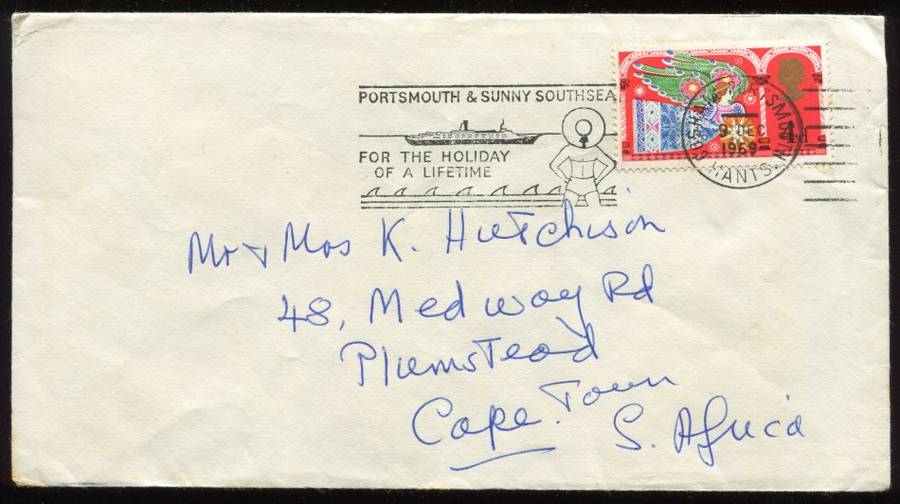 PORTSMOUTH & SUNNY SOUTHSEA
FOR THE HOLIDAY
OF A LIFETIME
9 DEC
1969
HANTS.
4d
Mr & Mrs K. Hutchison
48, Medway Rd
Plumstead
Cape Town
S. Africa